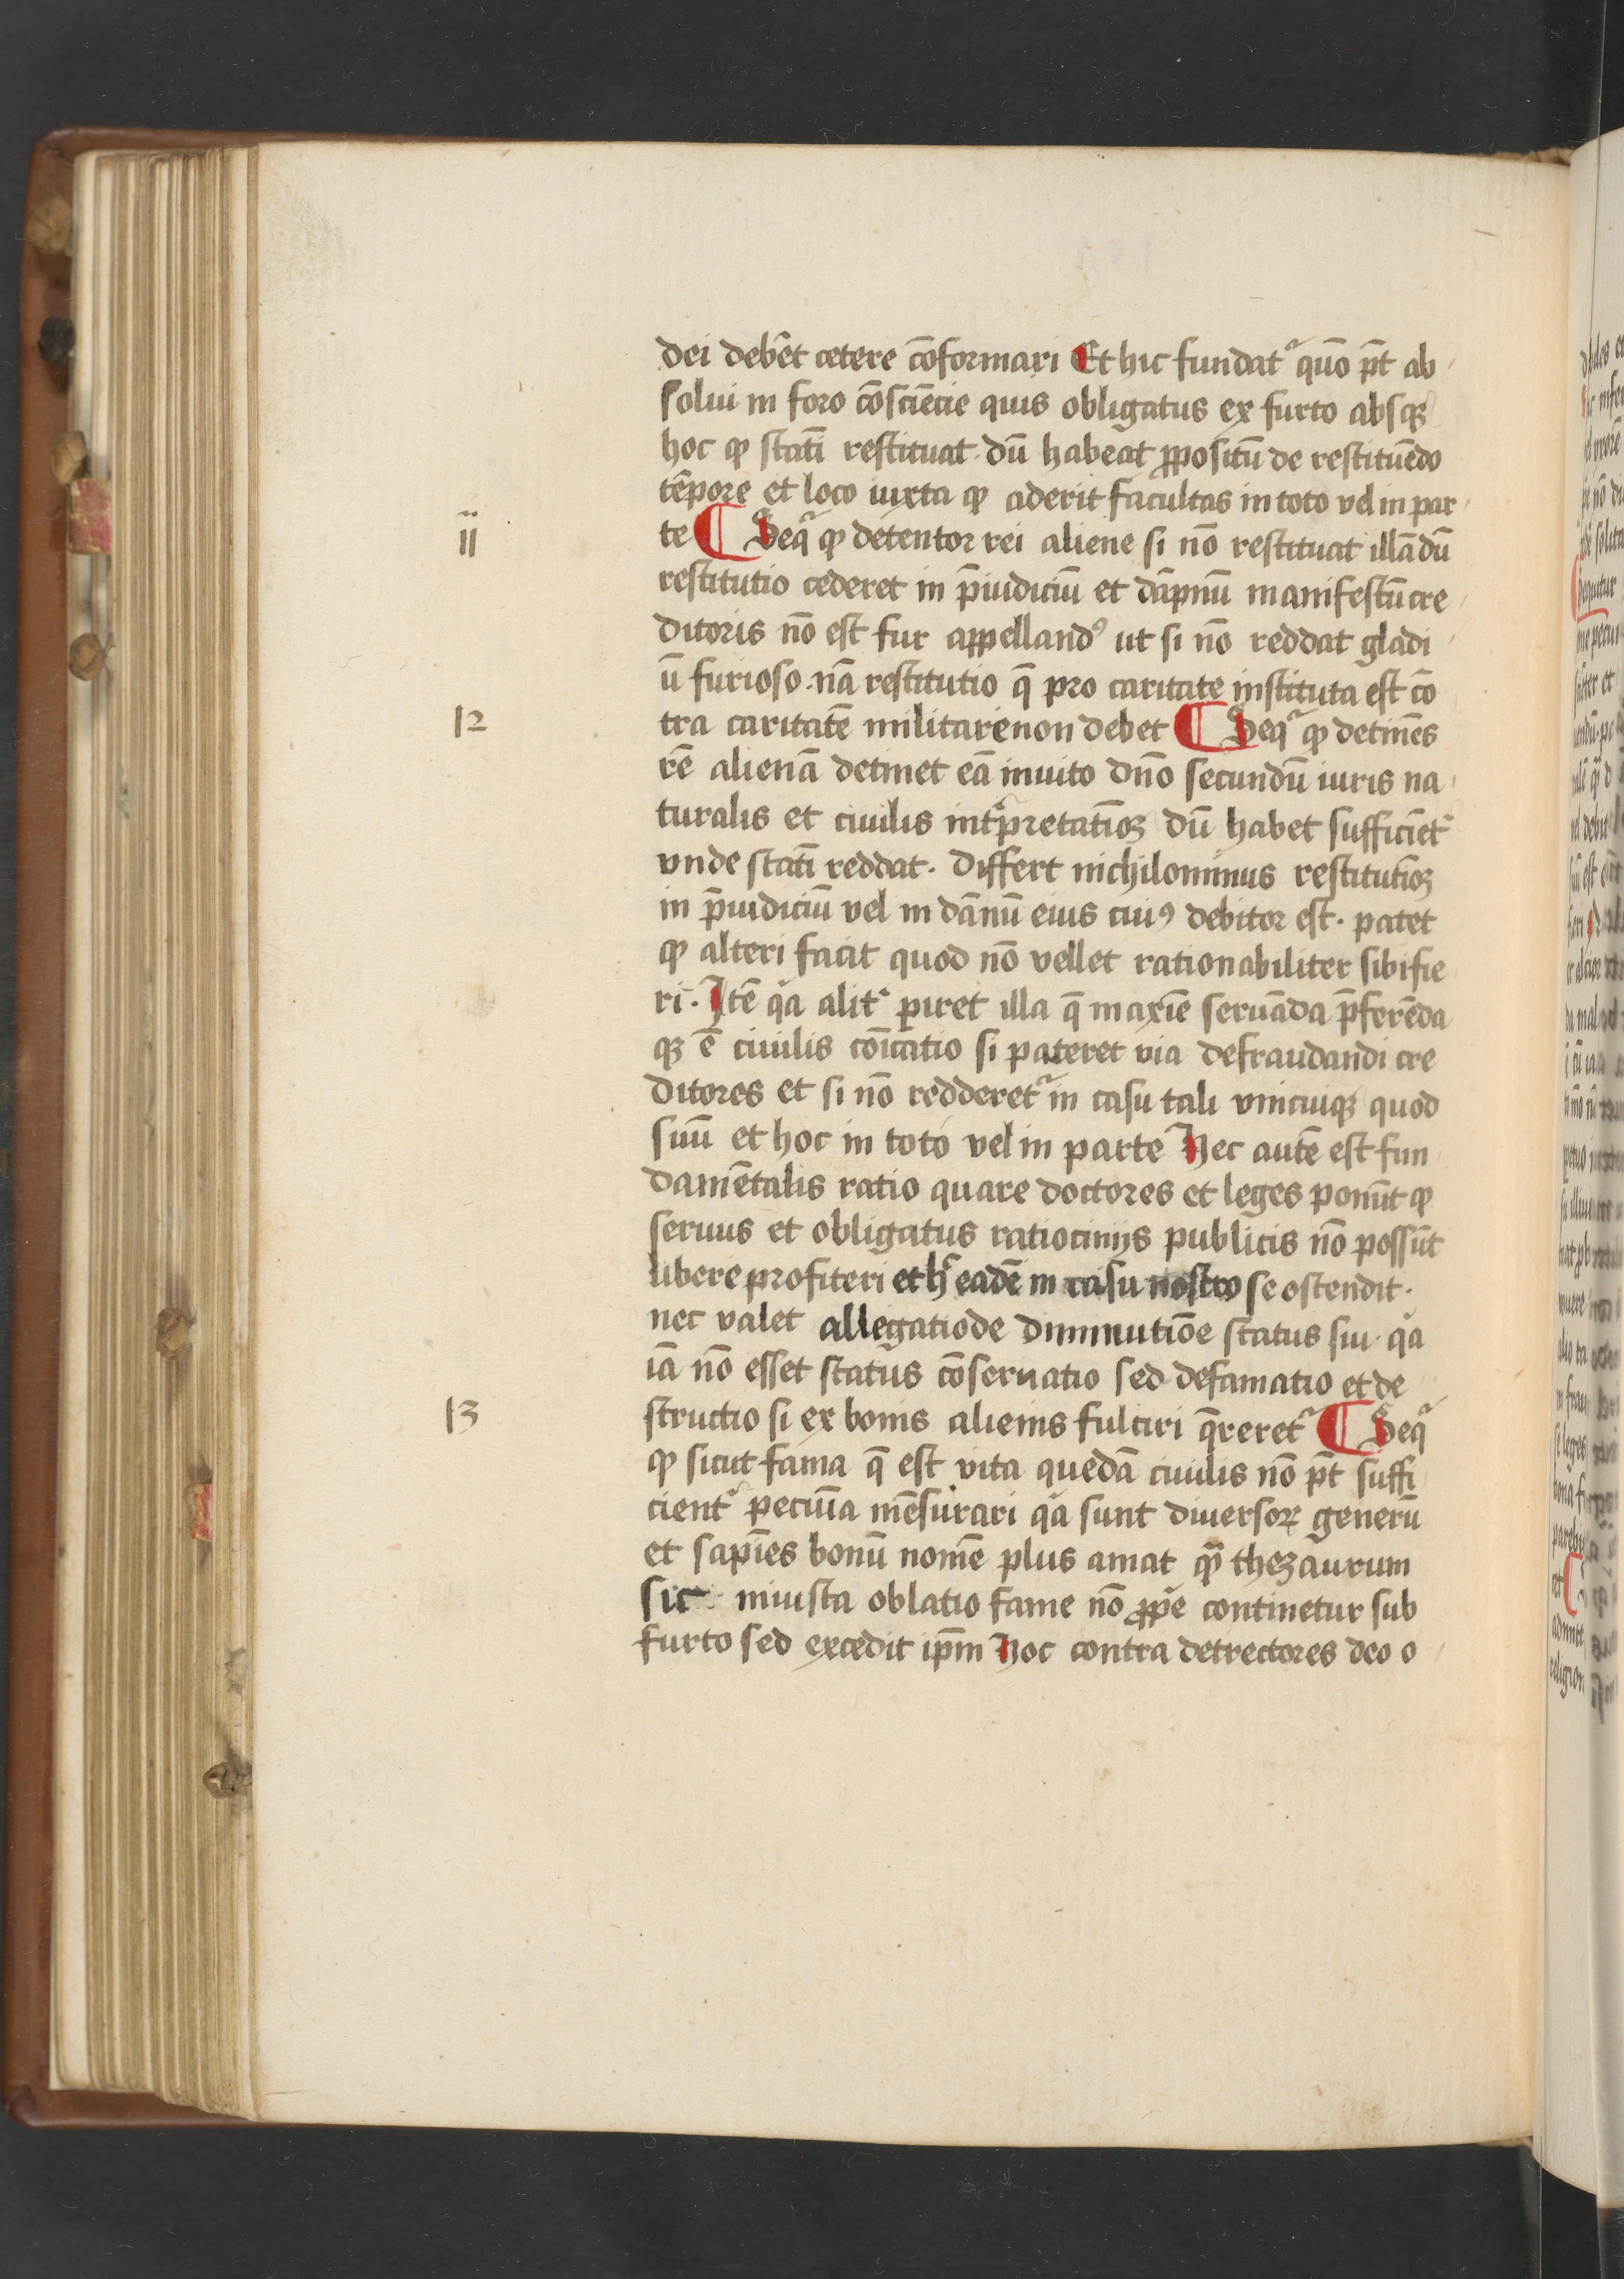 dei debēt cetere cōformari Et hic fundatᷣ quō pt̄ ab
solui in foro cōsciēcie quis obligatus ex furto absqꝫ
hoc ꝙ statī restituat. dū habeat ꝓpositū de restituēdo
tēpore et loco iuxta ꝙ aderit facultas in toto vel in par
11
te ¶ Seqᷣ ꝙ detentor rei aliene si nō restituat illā dū
restitutio cederet in p̄iudiciū et dāpnū manifestū cre
ditoris nō est fur appellandꝰ ut si nō reddat gladi
ū furioso. nā restitutio q̄ pro caritate instituta est cō
12
tra caritatē militare non debet ¶ Seqᷣ ꝙ detinēs
rē alienā detinet eā inuito dn̄o secundū iuris na
turalis et ciuilis intꝑpretatōꝫ dū habet sufficiētᷣ
vnde statī reddat. Differt nichilominus restitutōꝫ
in p̄iudiciū vel in dānū eius cuiꝰ debitor est. patet
ꝙ alteri facit quod nō vellet rationabiliter sibi fie
ri. Itē qͣa alitᷣ piret illa q̄ maxīe seruāda p̄ferēda
qꝫ ē ciuilis cōicatio si pateret via defraudandi cre
ditores et si nō redderetᷣ in casu tali vnicuiqꝫ quod
suū et hoc in toto vel in parte Hec autē est fun
damētalis ratio quare doctores et leges ponūt ꝙ
seruus et obligatus ratiocinijs publicis nō possūt
libere profiteri et hͨ eadē in casu nostro se ostendit.
nec valet allegatio de diminutiōe status sui. qͣa
iā nō esset status cōseruatio sed defamatio et de
13
structio si ex bonis alienis fulciri q̄reretᷣ ¶ Seqᷣ
ꝙ sicut fama q̄ est vita quedā ciuilis nō pt̄ suffi
cientᷣ pecunia mēsurari qͣa sunt diuersoꝝ generū
et sapiēs bonū nomē plus amat ꝙͣ thezaurum
sic iniusta oblatio fame nō ꝓpͥe continetur sub
furto sed excedit ip̄m Hoc contra detrectores deo o